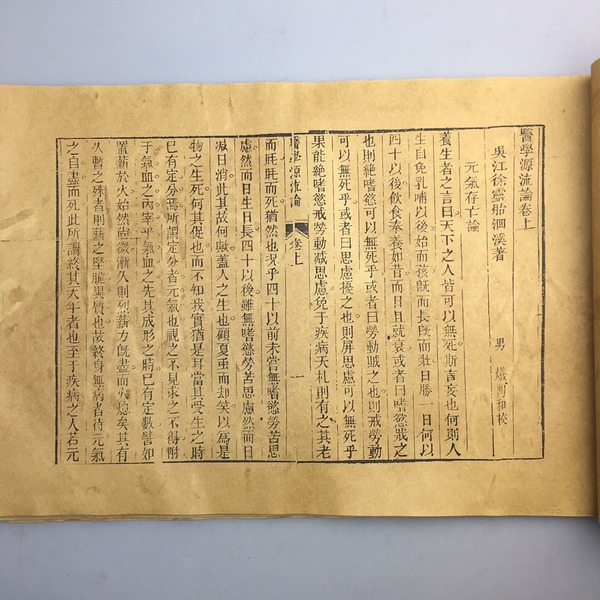 醫學源流論卷上
吳江徐靈胎洄溪著
男 爔鼎和校
元氣存亡論
養生者之言曰天下之人皆可以無死斯言妄也何則人
生自免乳哺以後始而孩既而長既而壯日勝一日何以
四十以後飲食奉養如昔而日且就衰或者曰嗜慾戕之
也則絕嗜慾可以無死乎或者曰勞動賊之也則戒勞動
可以無死乎或者曰思慮擾之也則屏思慮可以無死乎
果能絕嗜慾戒勞動減思慮免于疾病夭札則有之其老
醫學源流論 卷上 一
而眊眊而死猶然也況乎四十以前未嘗無嗜慾勞苦思
慮然而日生日長四十以後雖無嗜慾勞苦思慮然而日
減日消此其故何歟蓋人之生也顧夏蟲而却笑以為是
物之生死何其促也而不知我實猶是耳當其受生之時
已有定分焉所謂定分者元氣也視之不見求之不得附
于氣血之內宰乎氣血之先其成形之時已有定數譬如
置薪於火始然尚微漸久則烈薪力既盡而火熄矣其有
久暫之殊者則薪之堅脆異質也故終身無病者待元氣
之自盡而死此所謂終其天年者也至于疾病之人若元